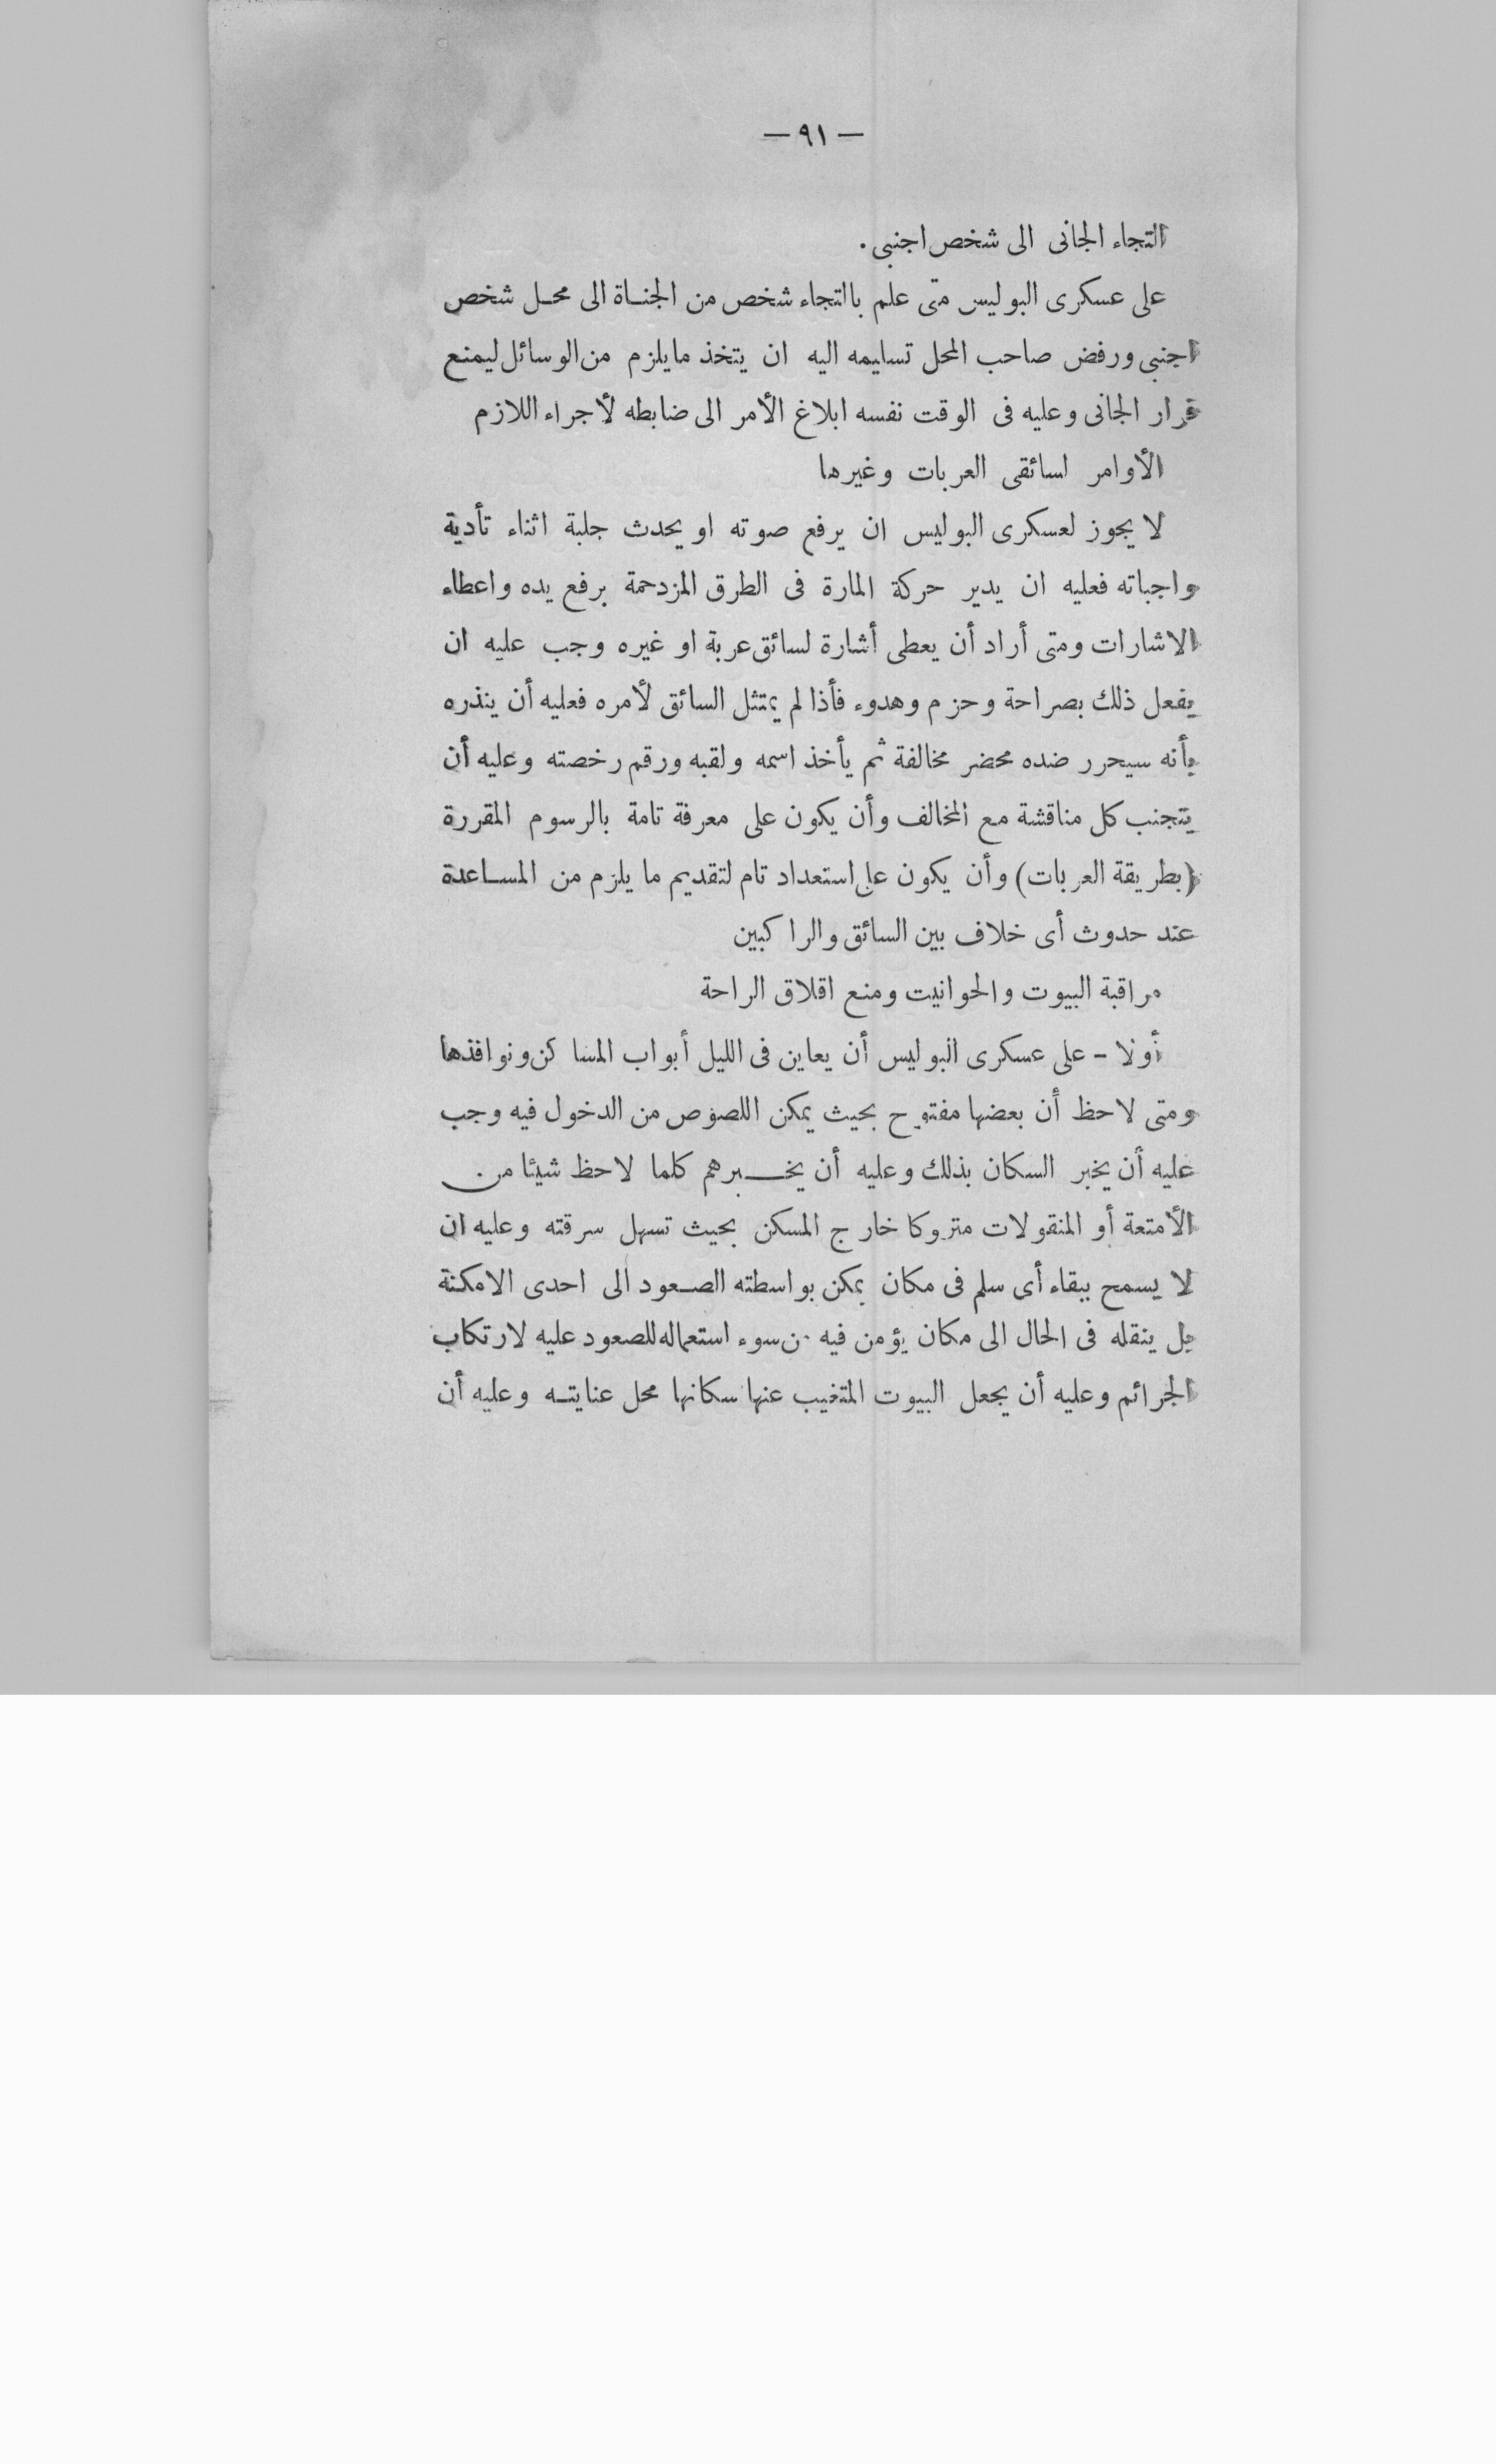 — ٩١ —
التجاء الجانى الى شخص اجنبى .
على عسكرى البوليس متى علم باالتجاء شخص من الجناة الى محل شخص
اجنبى ورفض صاحب المحل تسليمه اليه ان يتخذ مايلزم من الوسائل ليمنع
فرار الجانى وعليه فى الوقت نفسه ابلاغ الأمر الى ضابطه لأجراء اللازم
الأوامر لسائقى العربات وغيرها
لا يجوز لعسكرى البوليس ان يرفع صوته او يحدث جلبة اثناء تأدية
واجباته فعليه ان يدير حركة المارة فى الطرق المزدحمة برفع يده واعطاء
الاشارات ومتى أراد أن يعطى أشارة لسائق عربة او غيره وجب عليه ان
يفعل ذلك بصراحة وحزم وهدوء فأذا لم يمتثل السائق لأمره فعليه أن ينذره
بأنه سيحرر ضده محضر مخالفة ثم يأخذ اسمه ولقبه ورقم رخصته وعليه أن
يتجنب كل مناقشة مع المخالف وأن يكون على معرفة تامة بالرسوم المقررة
(بطريقة العربات) وأن يكون على استعداد تام لتقديم ما يلزم من المساعدة
عند حدوث أى خلاف بين السائق والراكبين
مراقبة البيوت والحوانيت ومنع اقلاق الراحة
أولا – على عسكرى البوليس أن يعاين فى الليل أبواب المساكن ونوافذها
ومتى لاحظ أن بعضها مفتوح بحيث يمكن اللصوص من الدخول فيه وجب
عليه أن يخبر السكان بذلك وعليه أن يخبرهم كلما لاحظ شيئا من
الأمتعة أو المنقولات متروكا خارج المسكن بحيث تسهل سرقته وعليه ان
لا يسمح ببقاء أى سلم فى مكان يمكن بواسطته الصعود الى احدى الامكنة
بل ينقله فى الحال الى مكان يؤمن فيه من سوء استعماله للصعود عليه لارتكاب
الجرائم وعليه أن يجعل البيوت المتغيب عنها سكانها محل عنايته وعليه أن